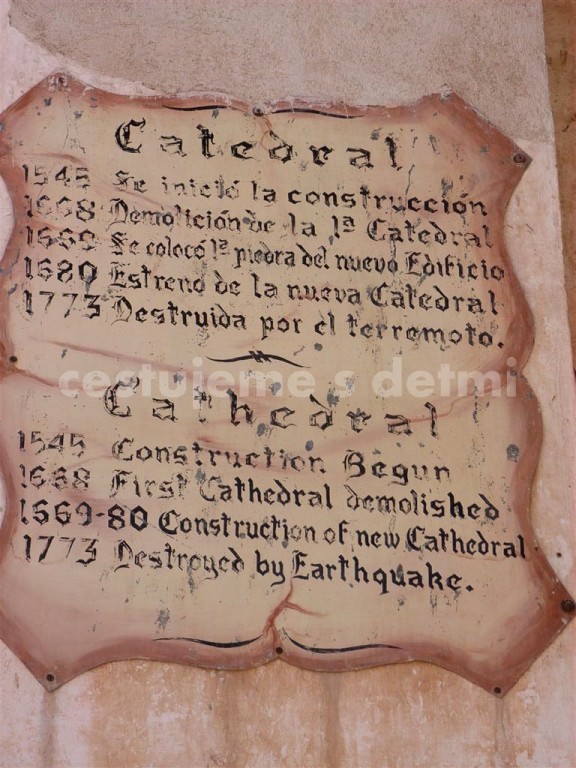 Catedral
1545 Se inició la construcción
1668 Demolición de la 1ª Catedral
1669 Se colocó 1ª piedra del nuevo Edificio
1680 Estreno de la nueva Catedral
1773 Destruida por el terremoto.
cestujeme s detmi
Cathedral
1545 Construction Begun
1668 First Cathedral demolished
1669-80 Construction of new Cathedral
1773 Destroyed by Earthquake.